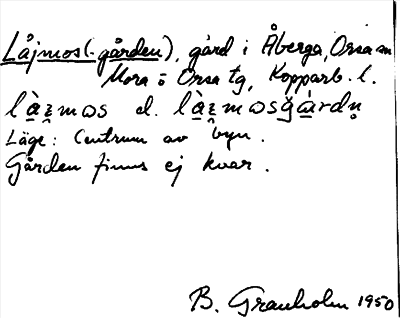 Låjmos(-gården), gård i Åberga, Orsa sn
Mora o Orsa tg, Kopparb. l.
Läge: Centrum av byn.
Gården finns ej kvar.
B. Granholm 1950